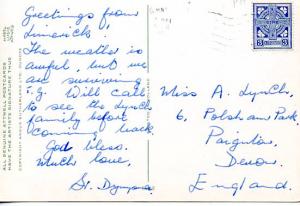 Greetings from
Limerick!
The weather is
awful, but we
are surviving
T.G. Will call
to see the Lynch
family before
coming back
God bless.
Much love,
Sr. Dympna
Miss A. Lynch,
6, Polsham Park,
Paignton
Devon,
England.
ALL GENUINE ATTWELL POSTCARDS
HAVE THE ARTIST'S SIGNATURE THUS
3
3